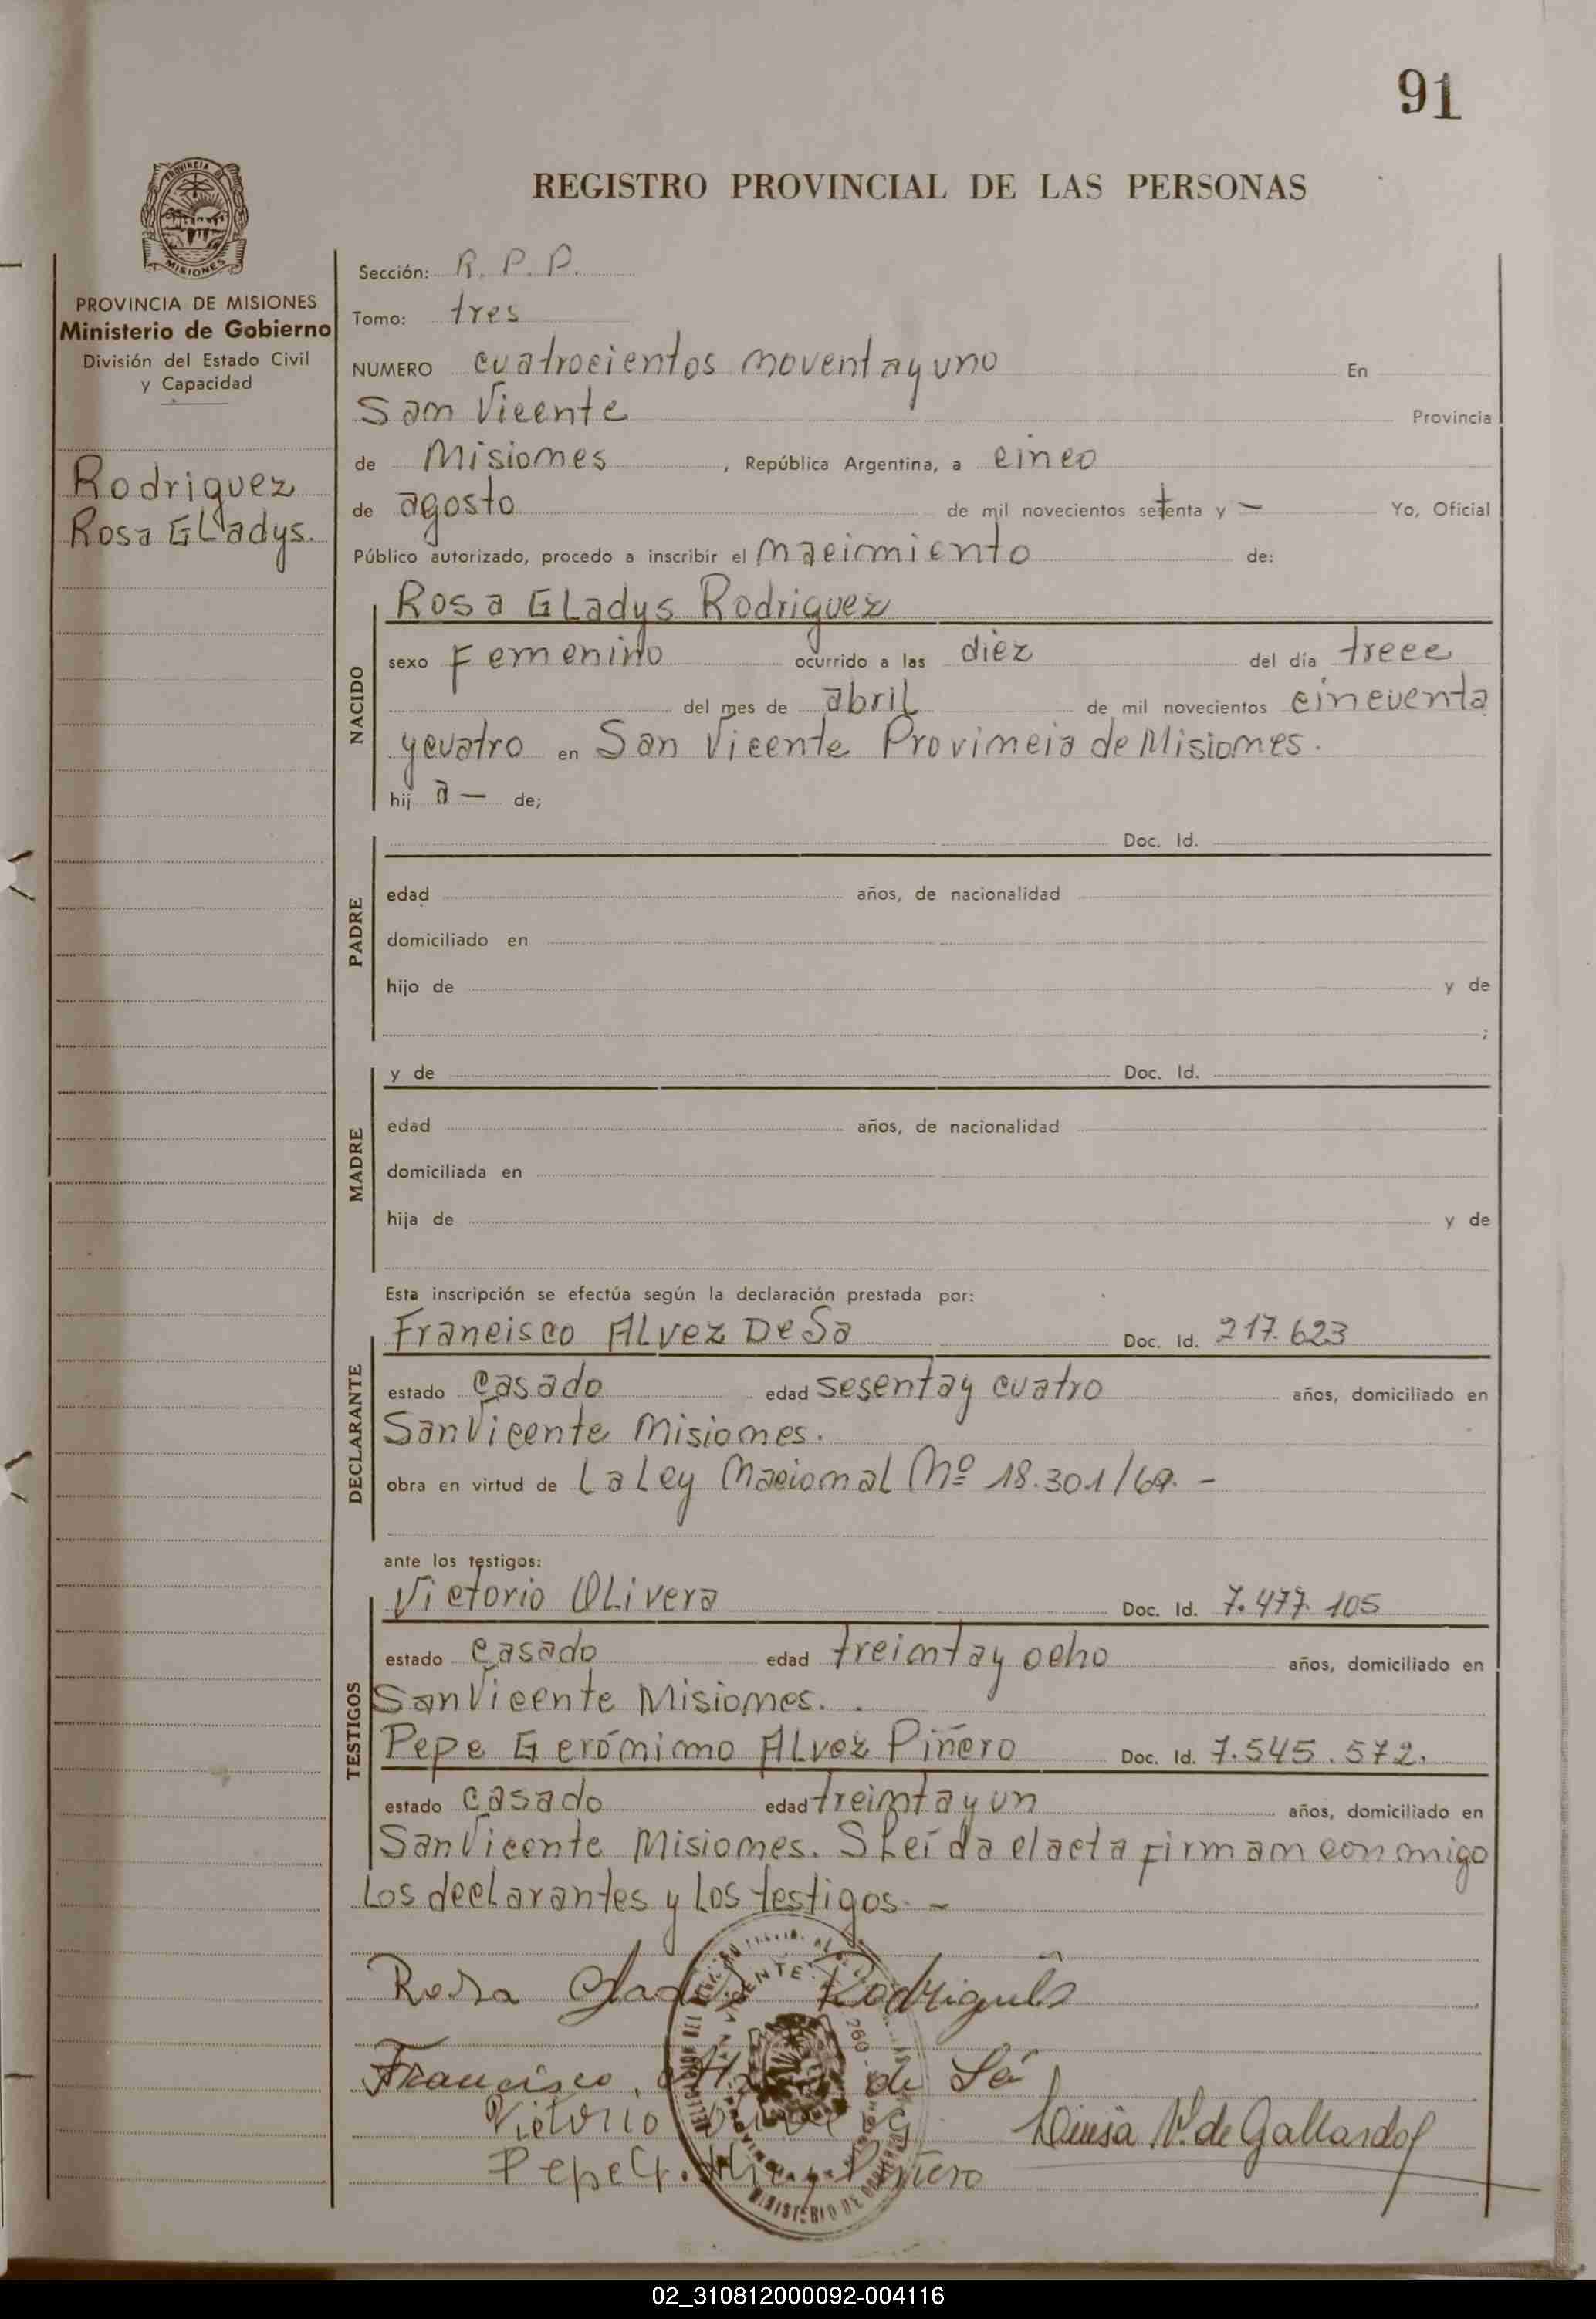 91
REGISTRO PROVINCIAL DE LAS PERSONAS
PROVINCIA DE MISIONES
Ministerio de Gobierno
División del Estado Civil
y Capacidad
Rodriguez
Rosa Gladys.
Sección: R. P. P.
Tomo: tres
NUMERO cuatrocientos noventa y uno En
San Vicente Provincia
de Misiones , República Argentina, a cinco
de agosto de mil novecientos setenta y — Yo, Oficial
Público autorizado, procedo a inscribir el nacimiento de:
NACIDO
Rosa Gladys Rodriguez
sexo Femenino ocurrido a las diez del día trece
del mes de abril de mil novecientos cincuenta
y cuatro en San Vicente Provincia de Misiones.
hij a — de;
PADRE
Doc. Id.
edad años, de nacionalidad
domiciliado en
hijo de y de
;
MADRE
y de Doc. Id.
edad años, de nacionalidad
domiciliada en
hija de y de
Esta inscripción se efectúa según la declaración prestada por:
DECLARANTE
Francisco Alvez De Sa Doc. Id. 217.623
estado casado edad sesenta y cuatro años, domiciliado en
San Vicente Misiones.
obra en virtud de La Ley Nacional Nº 18.301/69. -
ante los testigos:
TESTIGOS
Victorio Olivera Doc. Id. 7.477.105
estado casado edad treinta y ocho años, domiciliado en
San Vicente Misiones.
Pepe Gerónimo Alvez Piñero Doc. Id. 7.545.572.
estado casado edad treinta y un años, domiciliado en
San Vicente Misiones. S Leída el acta firman conmigo
Los declarantes y los testigos. -
Rosa Gladys Rodriguês
Francisco de Sá
Victorio
Luisa V. de Gallardo
Pepe G. Piñero
02_310812000092-004116